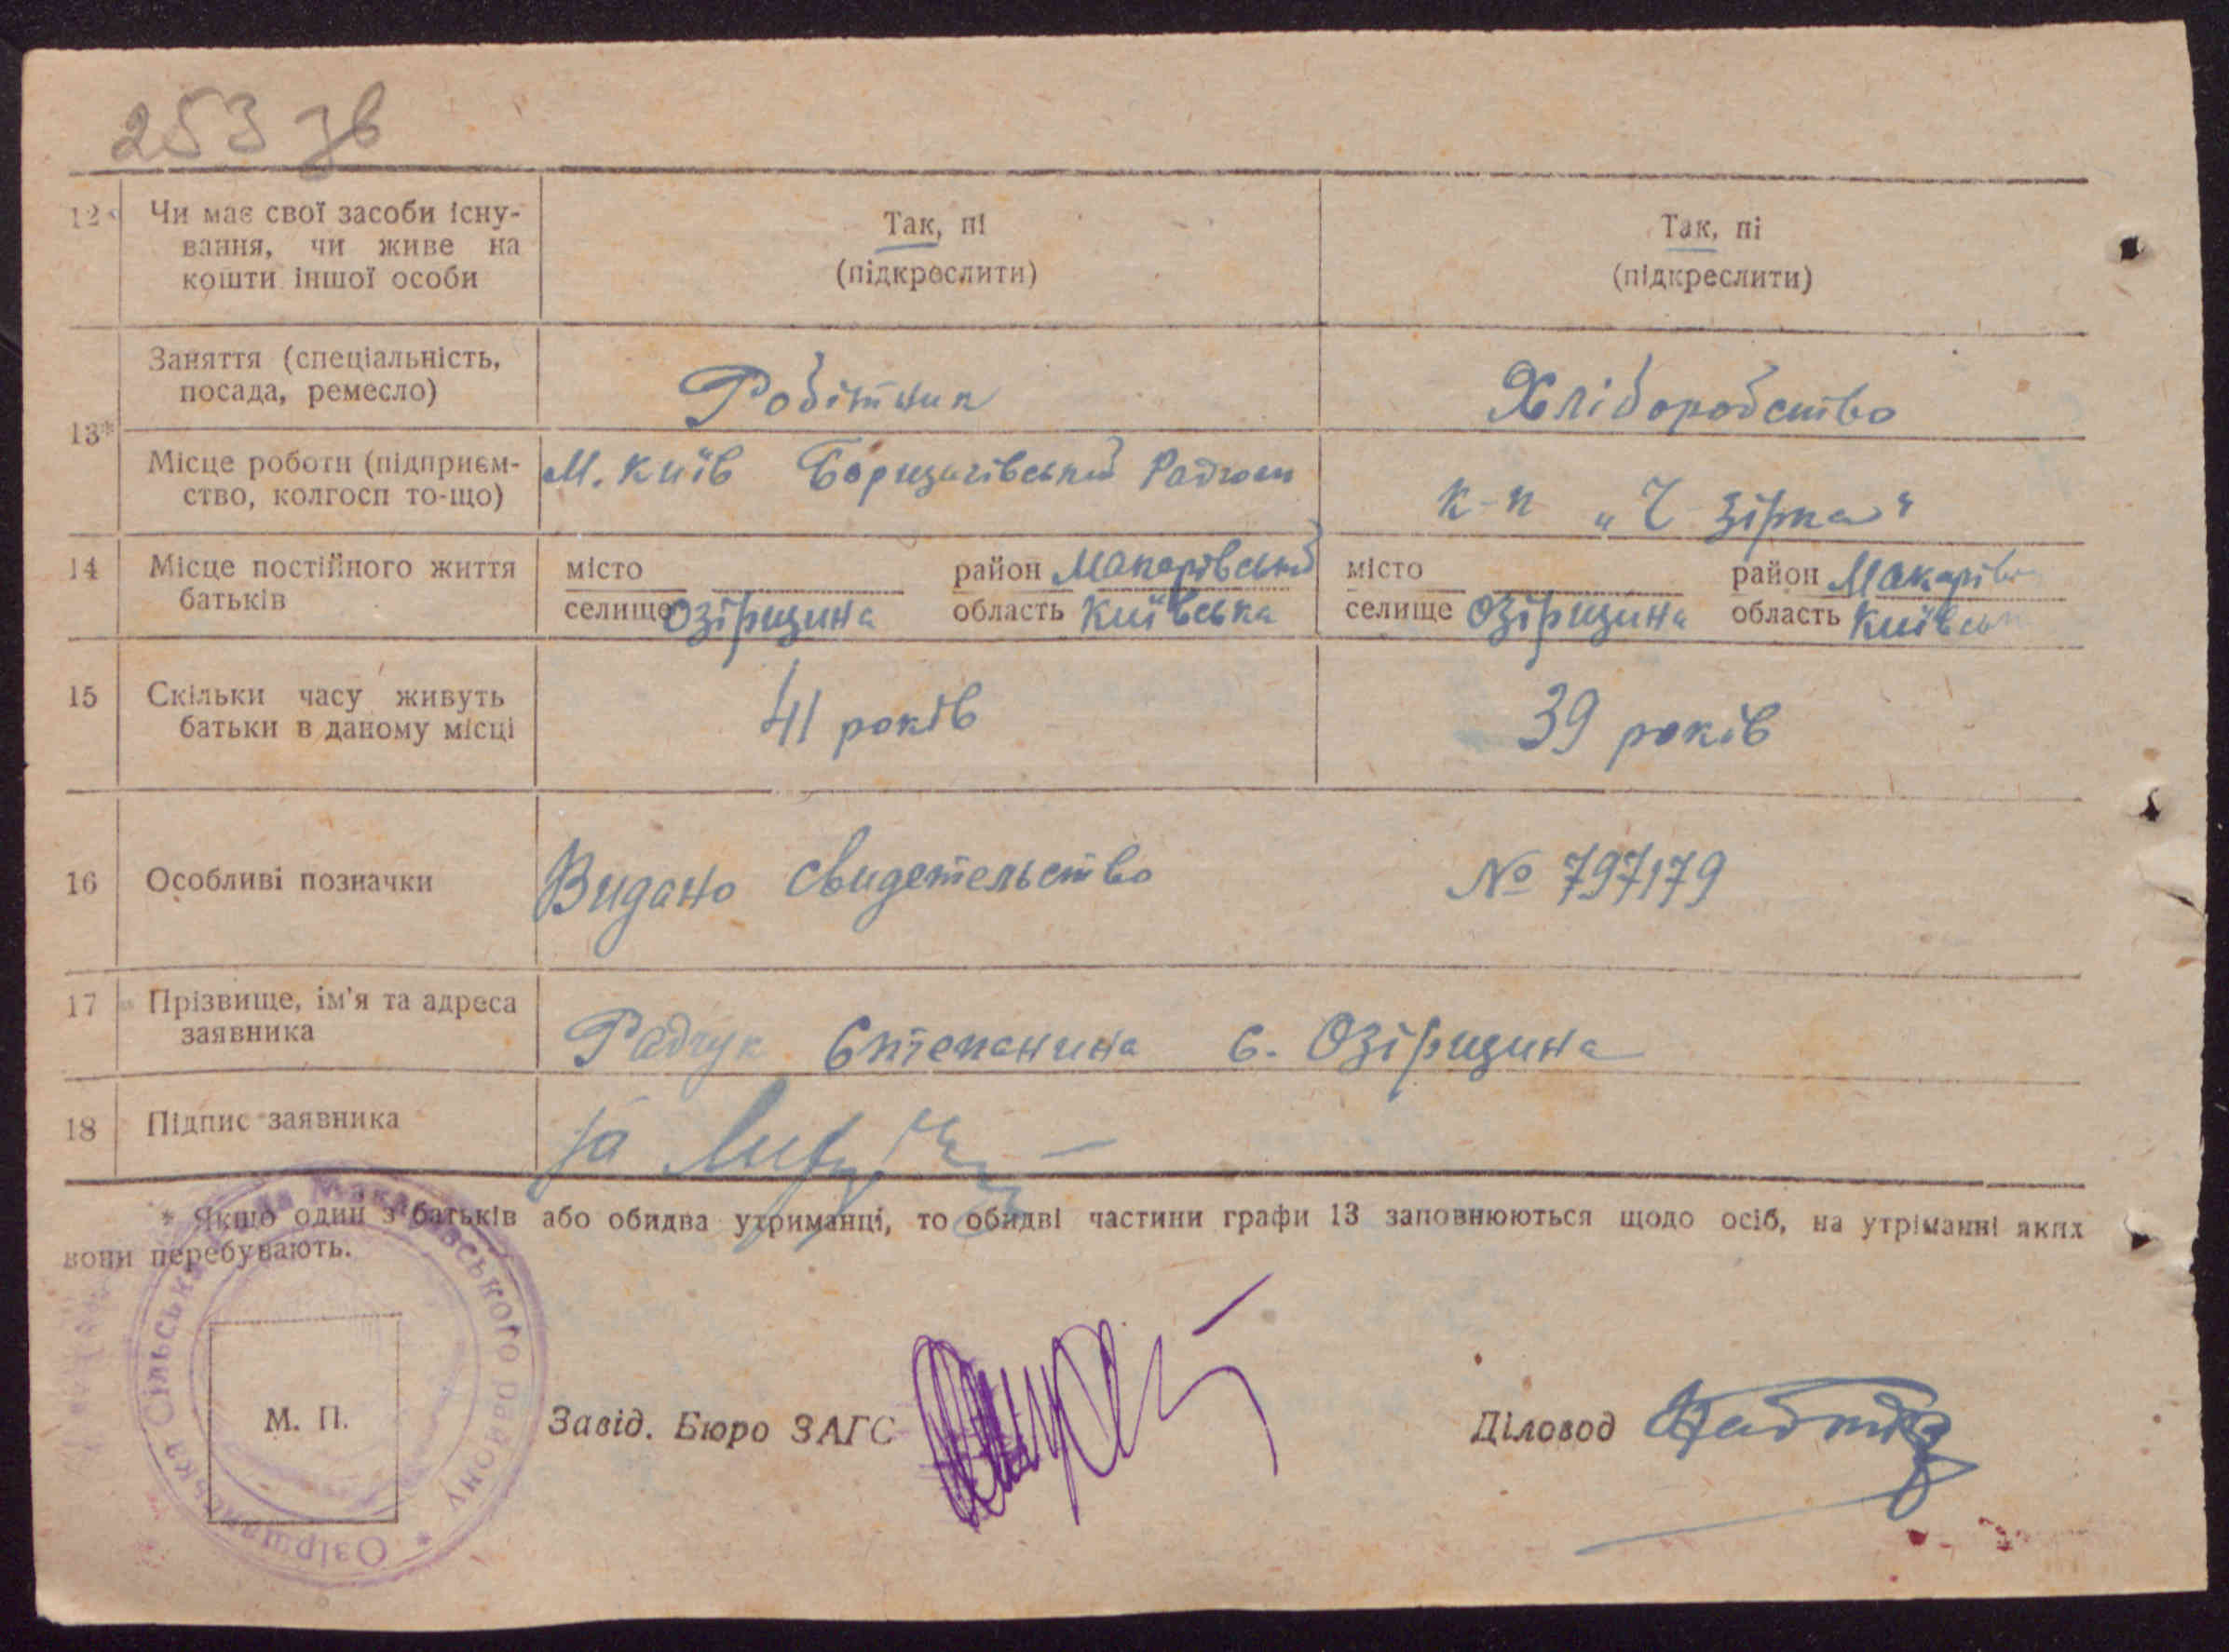 253 зв
12* Чи має свої засоби існу-
вання, чи живе на
кошти іншої особи
Так, ні
(підкреслити)
Так, ні
(підкреслити)
13*
Заняття (спеціальність,
посада, ремесло)
Робітник
Хліборобство
Місце роботи (підприєм-
ство, колгосп то-що)
М. Київ Борщагівський Радгосп
к-п „Ч зірка"
14 Місце постійного життя
батьків
місто район Макарівський
селище Озірщина область Київська
місто район Макарів
селище Озірщина область Київськ
15 Скільки часу живуть
батьки в даному місці
41 років
39 років
16 Особливі позначки
Видано свидетельство № 797179
17 Прізвище, ім'я та адреса
заявника
Радчук с. Озірщина
18 Підпис заявника
за
* Якщо один з батьків або обидва утриманці, то обидві частини графи 13 заповнюються щодо осіб, на утріманні яких
вони перебувають.
Озірщанська Сільська Рада Макарівського району
М. П.
Завід. Бюро ЗАГС
Діловод